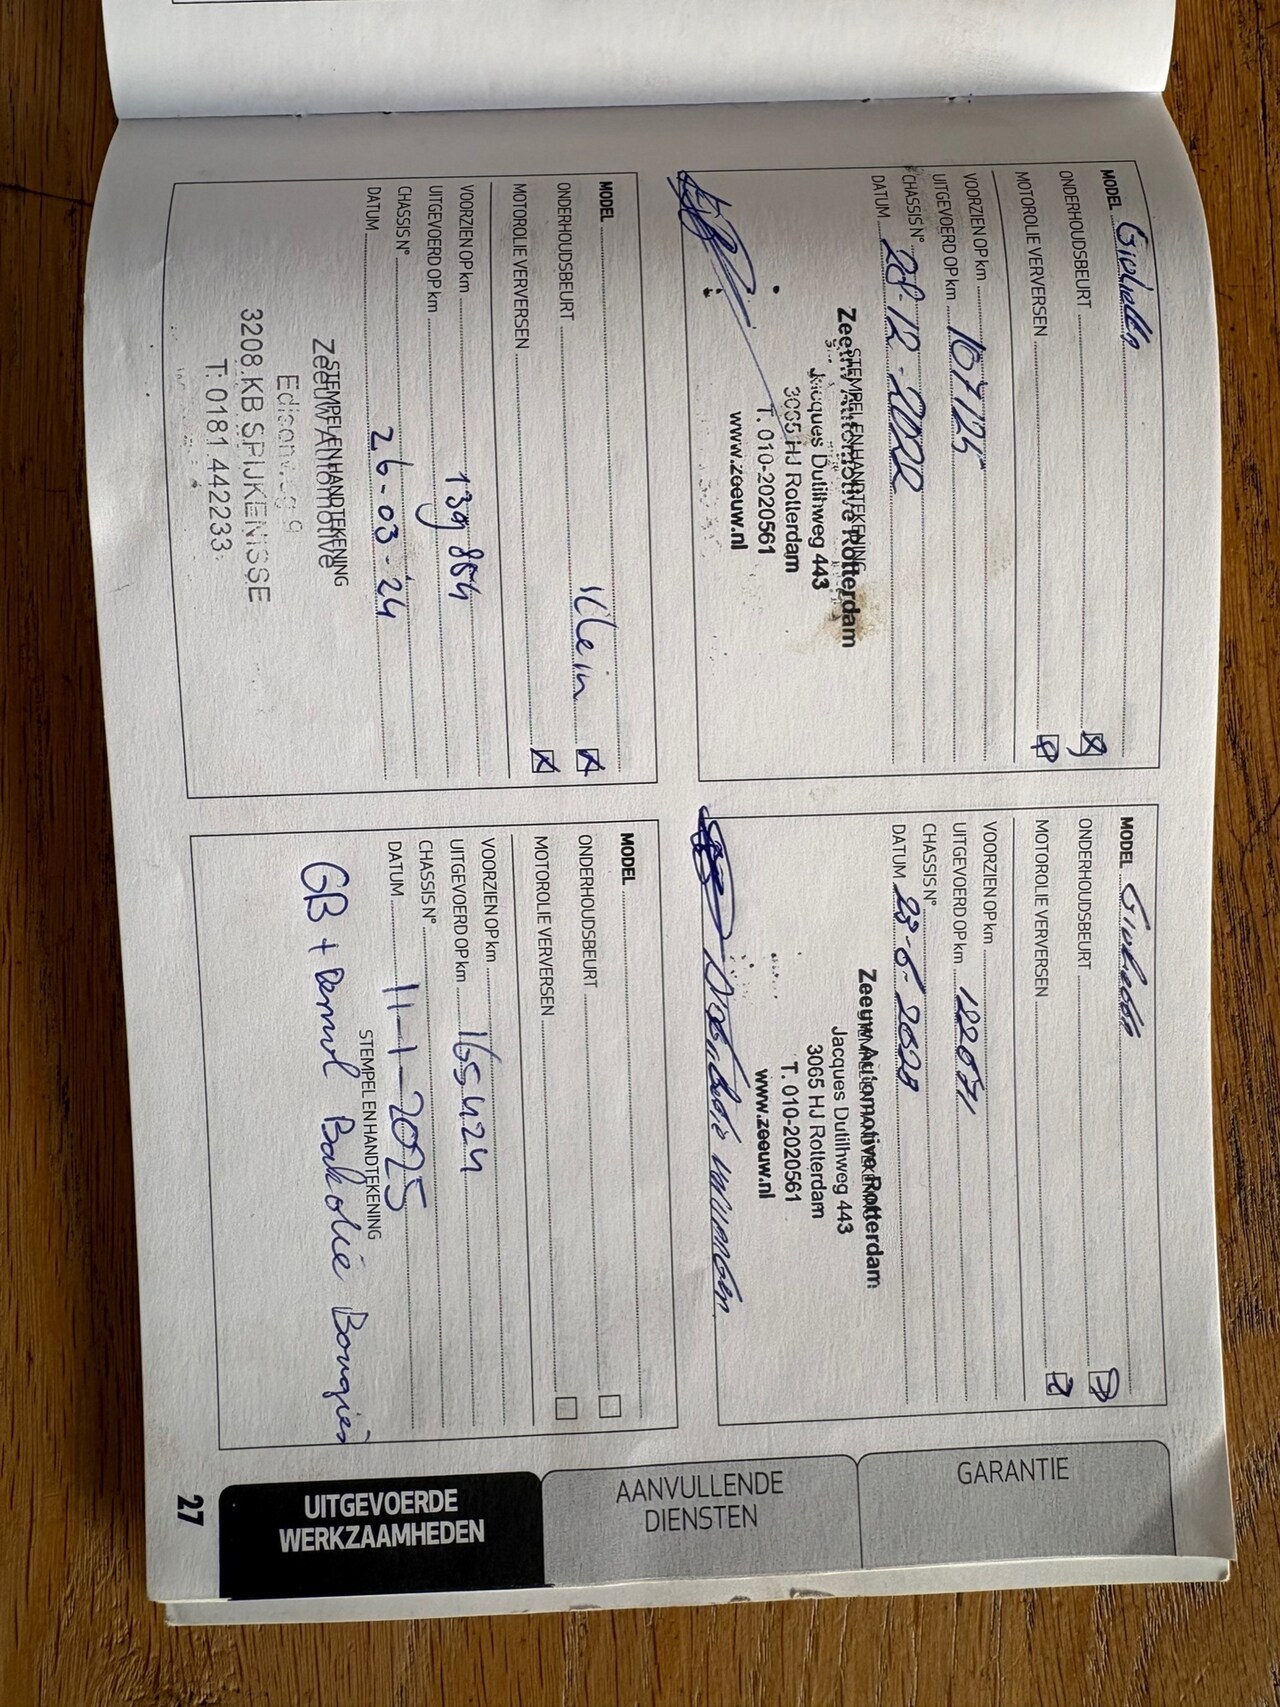 MODEL
ONDERHOUDSBEURT
MOTOROLIE VERVERSEN
VOORZIEN OP km
UITGEVOERD OP km 107125
CHASSIS N°
DATUM 28-12-2022
STEMPEL EN HANDTEKENING
Zeeuw Automotive Rotterdam
Jacques Dutilhweg 443
3065 HJ Rotterdam
T. 010-2020561
www.zeeuw.nl
MODEL
ONDERHOUDSBEURT
MOTOROLIE VERVERSEN
VOORZIEN OP km
UITGEVOERD OP km 122071
CHASSIS N°
DATUM
Zeeuw Automotive Rotterdam
Jacques Dutilhweg 443
3065 HJ Rotterdam
T. 010-2020561
www.zeeuw.nl
vervangen
MODEL
ONDERHOUDSBEURT Klein
MOTOROLIE VERVERSEN
VOORZIEN OP km
UITGEVOERD OP km 139864
CHASSIS N°
DATUM 26-03-24
STEMPEL EN HANDTEKENING
Zeeuw Automotive
Edisonweg 9
3208 KB SPIJKENISSE
T: 0181 442233
MODEL
ONDERHOUDSBEURT
MOTOROLIE VERVERSEN
VOORZIEN OP km
UITGEVOERD OP km 165424
CHASSIS N°
DATUM 11-1-2025
STEMPEL EN HANDTEKENING
GB + Bakolie Bougies
GARANTIE
AANVULLENDE
DIENSTEN
UITGEVOERDE
WERKZAAMHEDEN
27